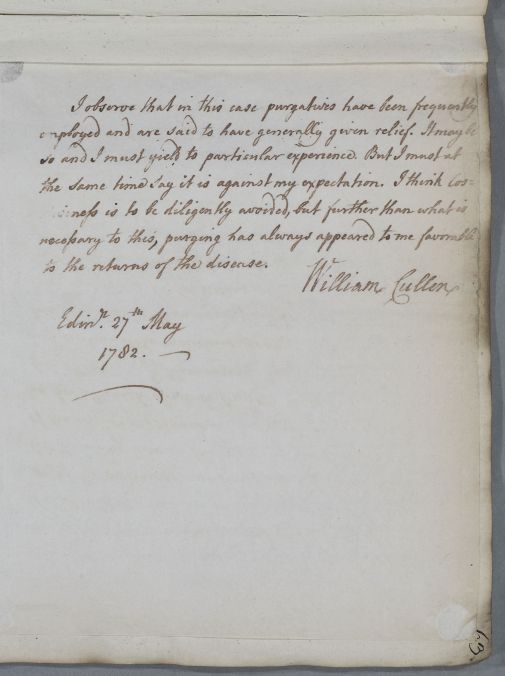 I observe that in this case purgatives have been frequently
employed and are said to have generally given relief. It may be
so and I must yield to particular experience. But I must at
the same time say it is against my expectation. I think Cos=
tiveness is to be diligently avoided, but further than what is
necessary to this, purging has always appeared to me favorable
to the returns of the disease.
William Cullen
Edinr. 27th May
1782.